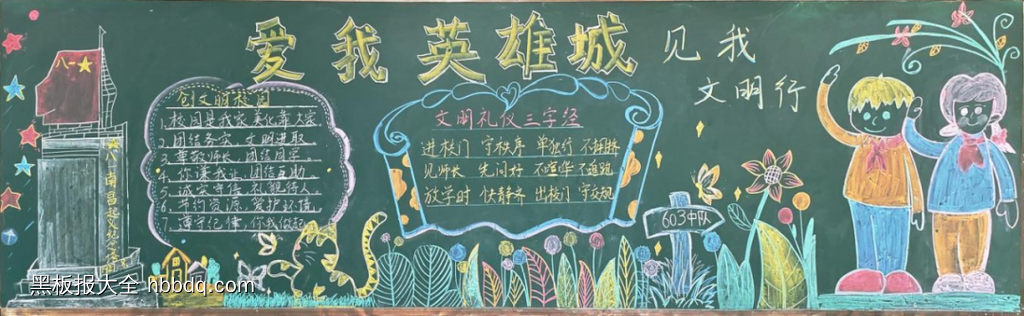 爱我英雄城
见我
文明行
八一
创文明校园
1.校园是我家 美化靠大家
2.团结务实 文明进取
3.尊敬师长 团结同学
4.你谦我让 团结互助
5.诚实守信 礼貌待人
6.节约资源 爱护环境
7.遵守纪律 你我做起
文明礼仪三字经
进校门 守秩序 单独行 不拥挤
见师长 先问好 不喧华 不追跑
放学时 快静齐 出校门 守交规
603中队
黑板报大全 hbbdq.com